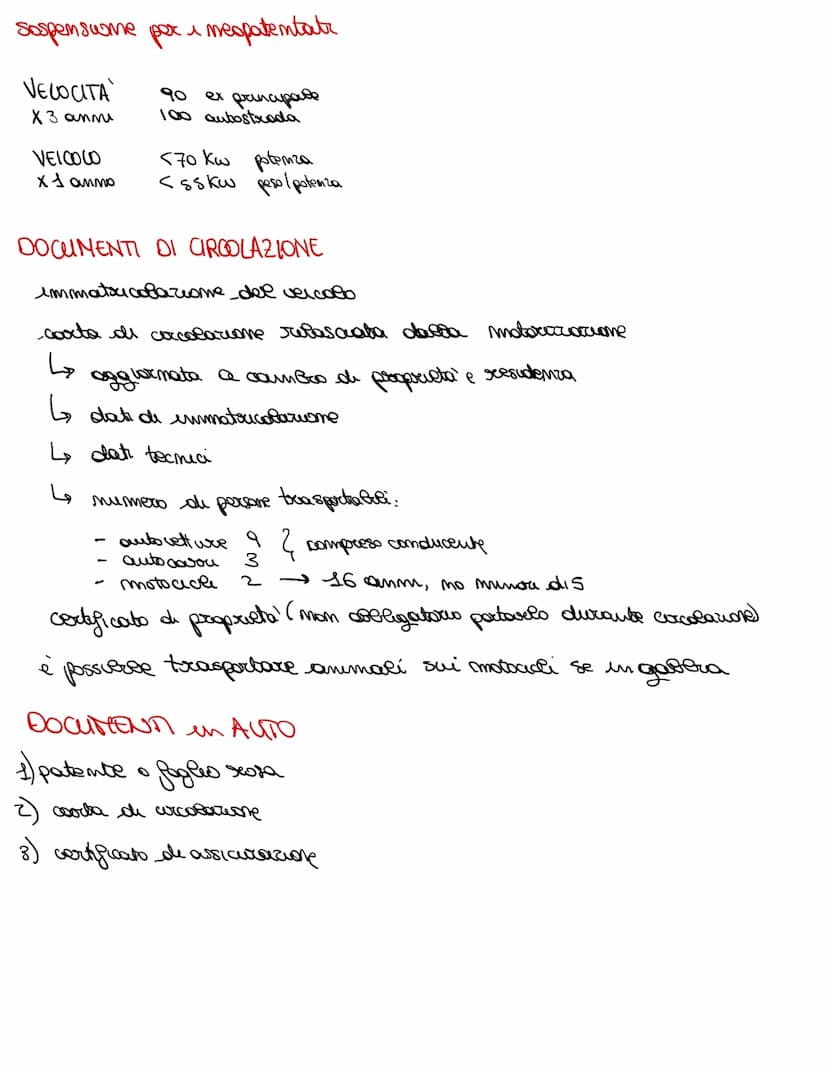 sospensione per i neopatentati
VELOCITA' 90 ex principale
X 3 anni 100 autostrada
VEICOLO <70 Kw potenza
X 1 anno <55Kw peso/potenza
DOCUMENTI DI CIRCOLAZIONE
immatricolazione del veicolo
carta di circolazione rilasciata dalla motorizzazione
↳ aggiornata a cambio di proprietà e residenza
↳ dati di immatricolazione
↳ dati tecnici
↳ numero di persone trasportabili:
- autovetture 9 } compreso conducente
- autocarri 3
- motocicli 2 → 16 anni, no minori di 5
certificato di proprietà (non obbligatorio portarlo durante circolazione)
è possibile trasportare animali sui motocicli se in gabbia
DOCUMENTI in AUTO
1) patente o foglio rosa
2) carta di circolazione
3) certificato di assicurazione